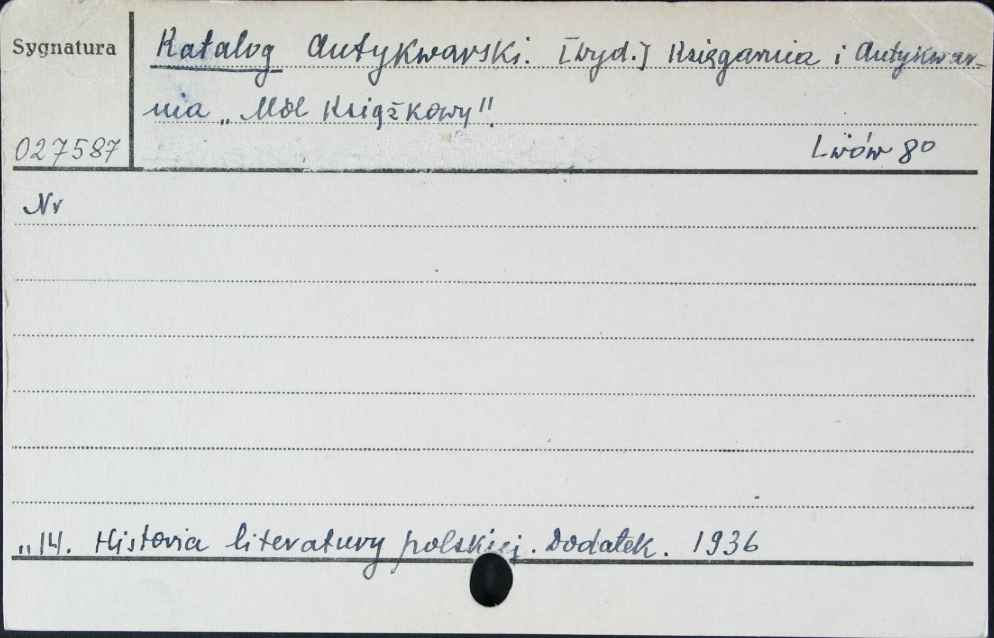 Sygnatura
Katalog Antykwarski. [Wyd.] Księgarnia i Antykwar-
nia „Mól Książkowy".
027587
Lwów 8°
Nr
„ 14. Historia literatury polskiej. Dodatek. 1936